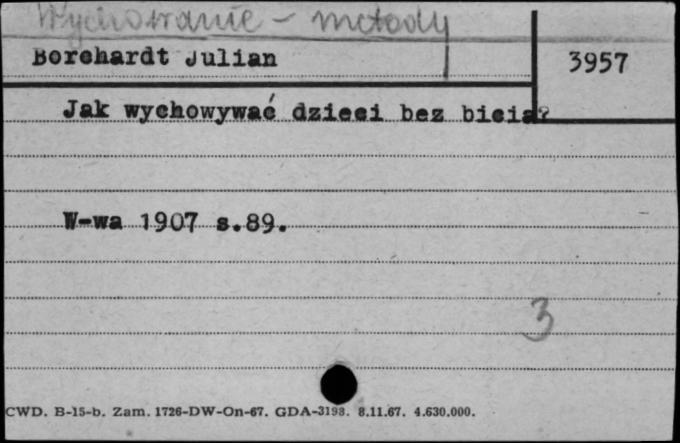 Wychowanie - metody
Borchardt Julian
3957
Jak wychowywać dzieci bez bicia?
W-wa 1907 s.89.
3
CWD. B-15-b. Zam. 1726-DW-On-67. GDA-3198. 8.11.67. 4.630.000.